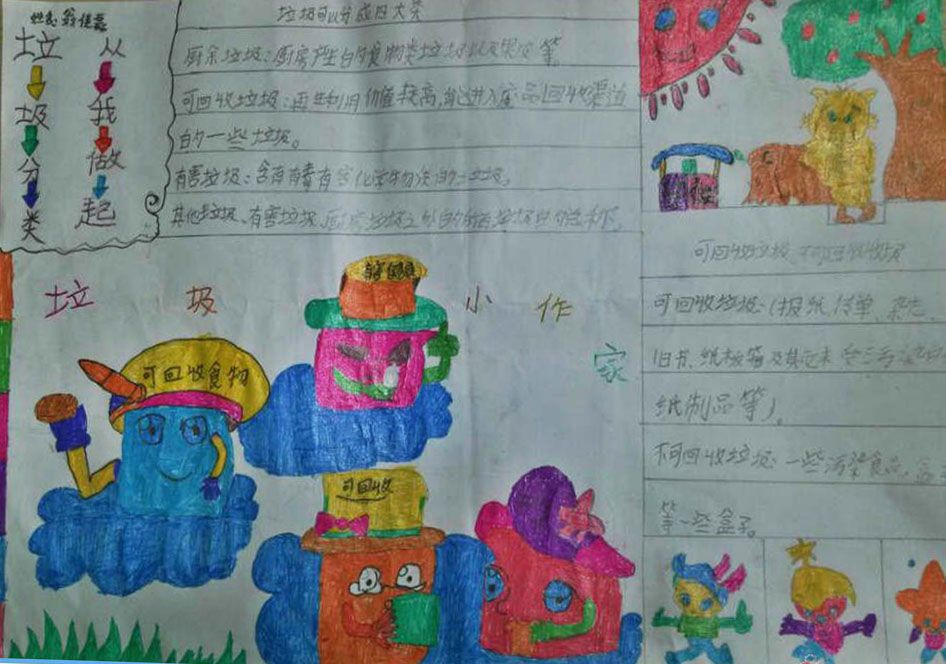 垃圾分类
从我做起
垃圾可以分成四大类
厨余垃圾：厨房产生的食物类垃圾以及果皮等
可回收垃圾：再生利用价值较高，能进入废品回收渠道
的一些垃圾。
有害垃圾：含有有毒有害化学物质的一垃圾。
其他垃圾、有害垃圾
垃 圾 小 作 家
可回收食物
可回收
可回收垃圾
可回收垃圾：（报纸、传单、杂志、
旧书、纸板箱及其它未
纸制品等）。
不可回收垃圾：一些污染食品、
等一些盒子。